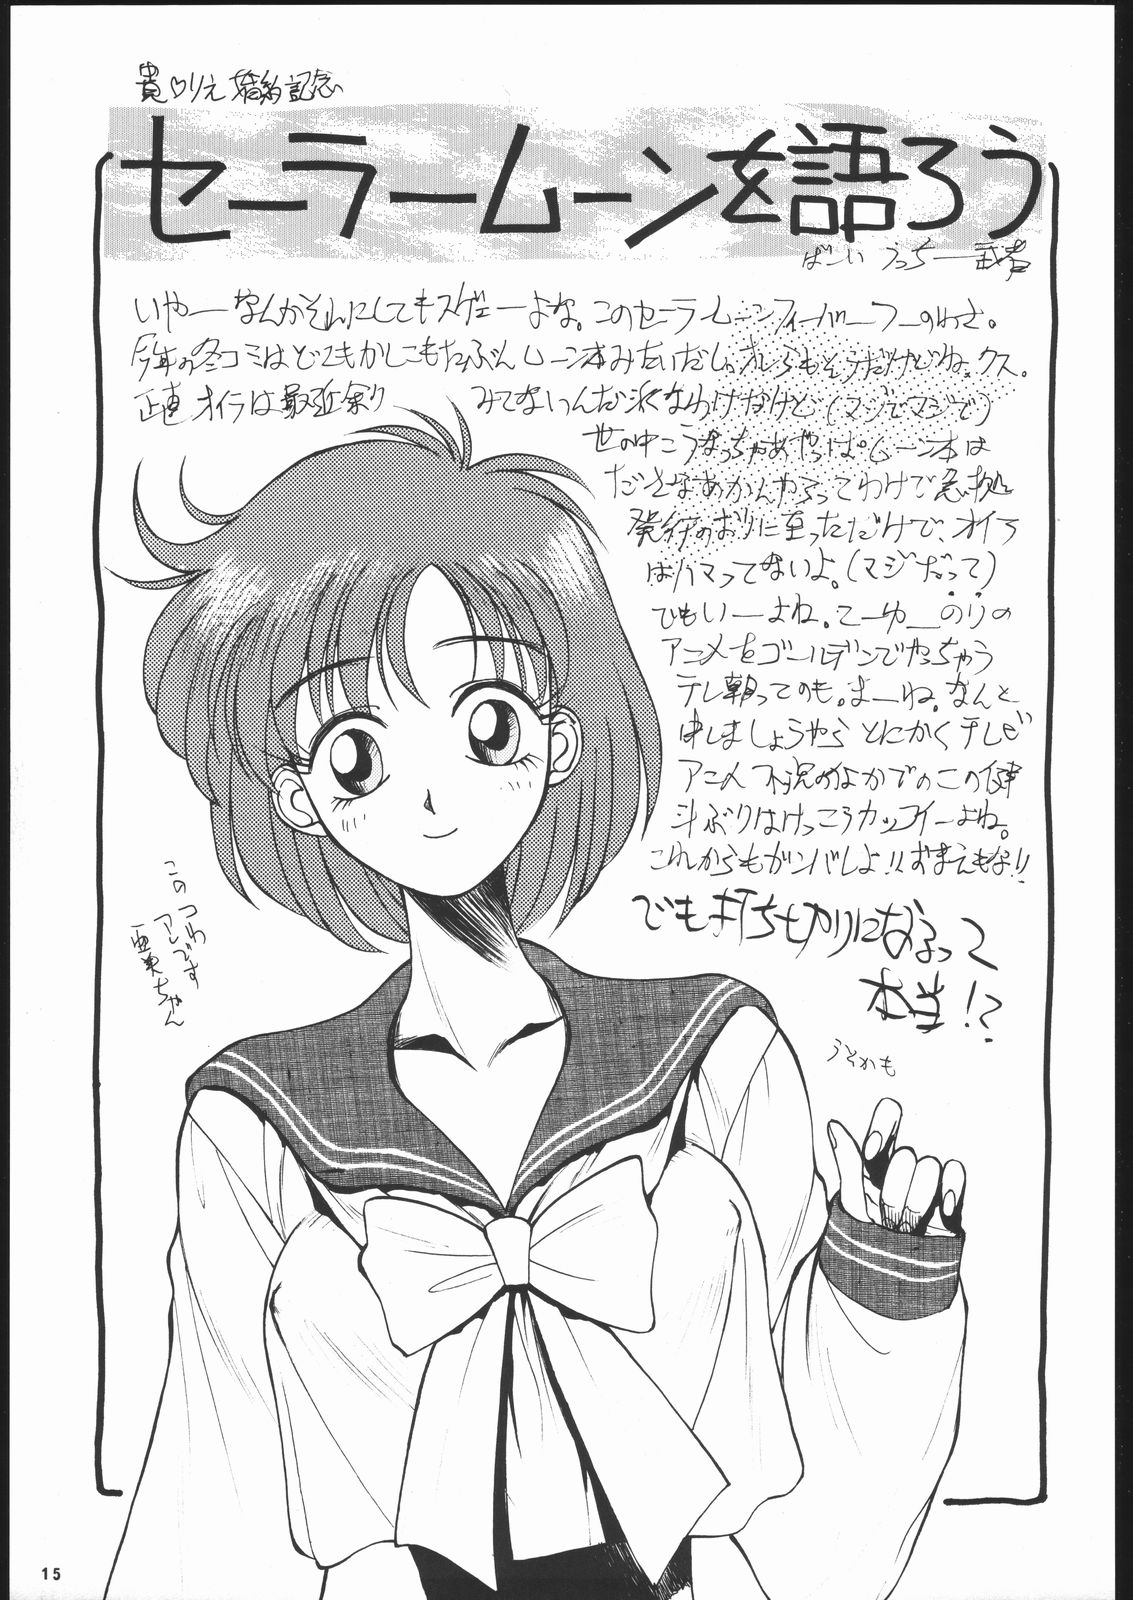 貴♡りえ婚約記念
セーラームーンを語ろう
ばーい うっちー武者
いやーなんかそんにしてもスゲェーよね。このセーラームーンフィーバーのわさ。
今年の冬コミはどこもかしこもたぶんムーン本みたいだし。オレらもそうだけどね。クス。
正直オイラは最近余り みてないんだなわけだけど(マジでマジで)
世の中こうなっちゃあやっぱムーン本は
ださなあかんやろってわけで急拠
発行のおりに至っただけで、オイラ
はハマってないよ。(マジだって)
でもいーよね。こーゆーのりの
アニメをゴールデンでやっちゃう
テレ朝ってのも。まーね。なんと
申しましょうやら とにかくテレビ
アニメ不況のなかでのこの健
斗ぶりはけっこうカッコイーよね。
これからもガンバレよ!!おまえもな!!
でも打ち切りになるって
本当!?
うそかも
このコわ
アレです
亜美ちゃん
15